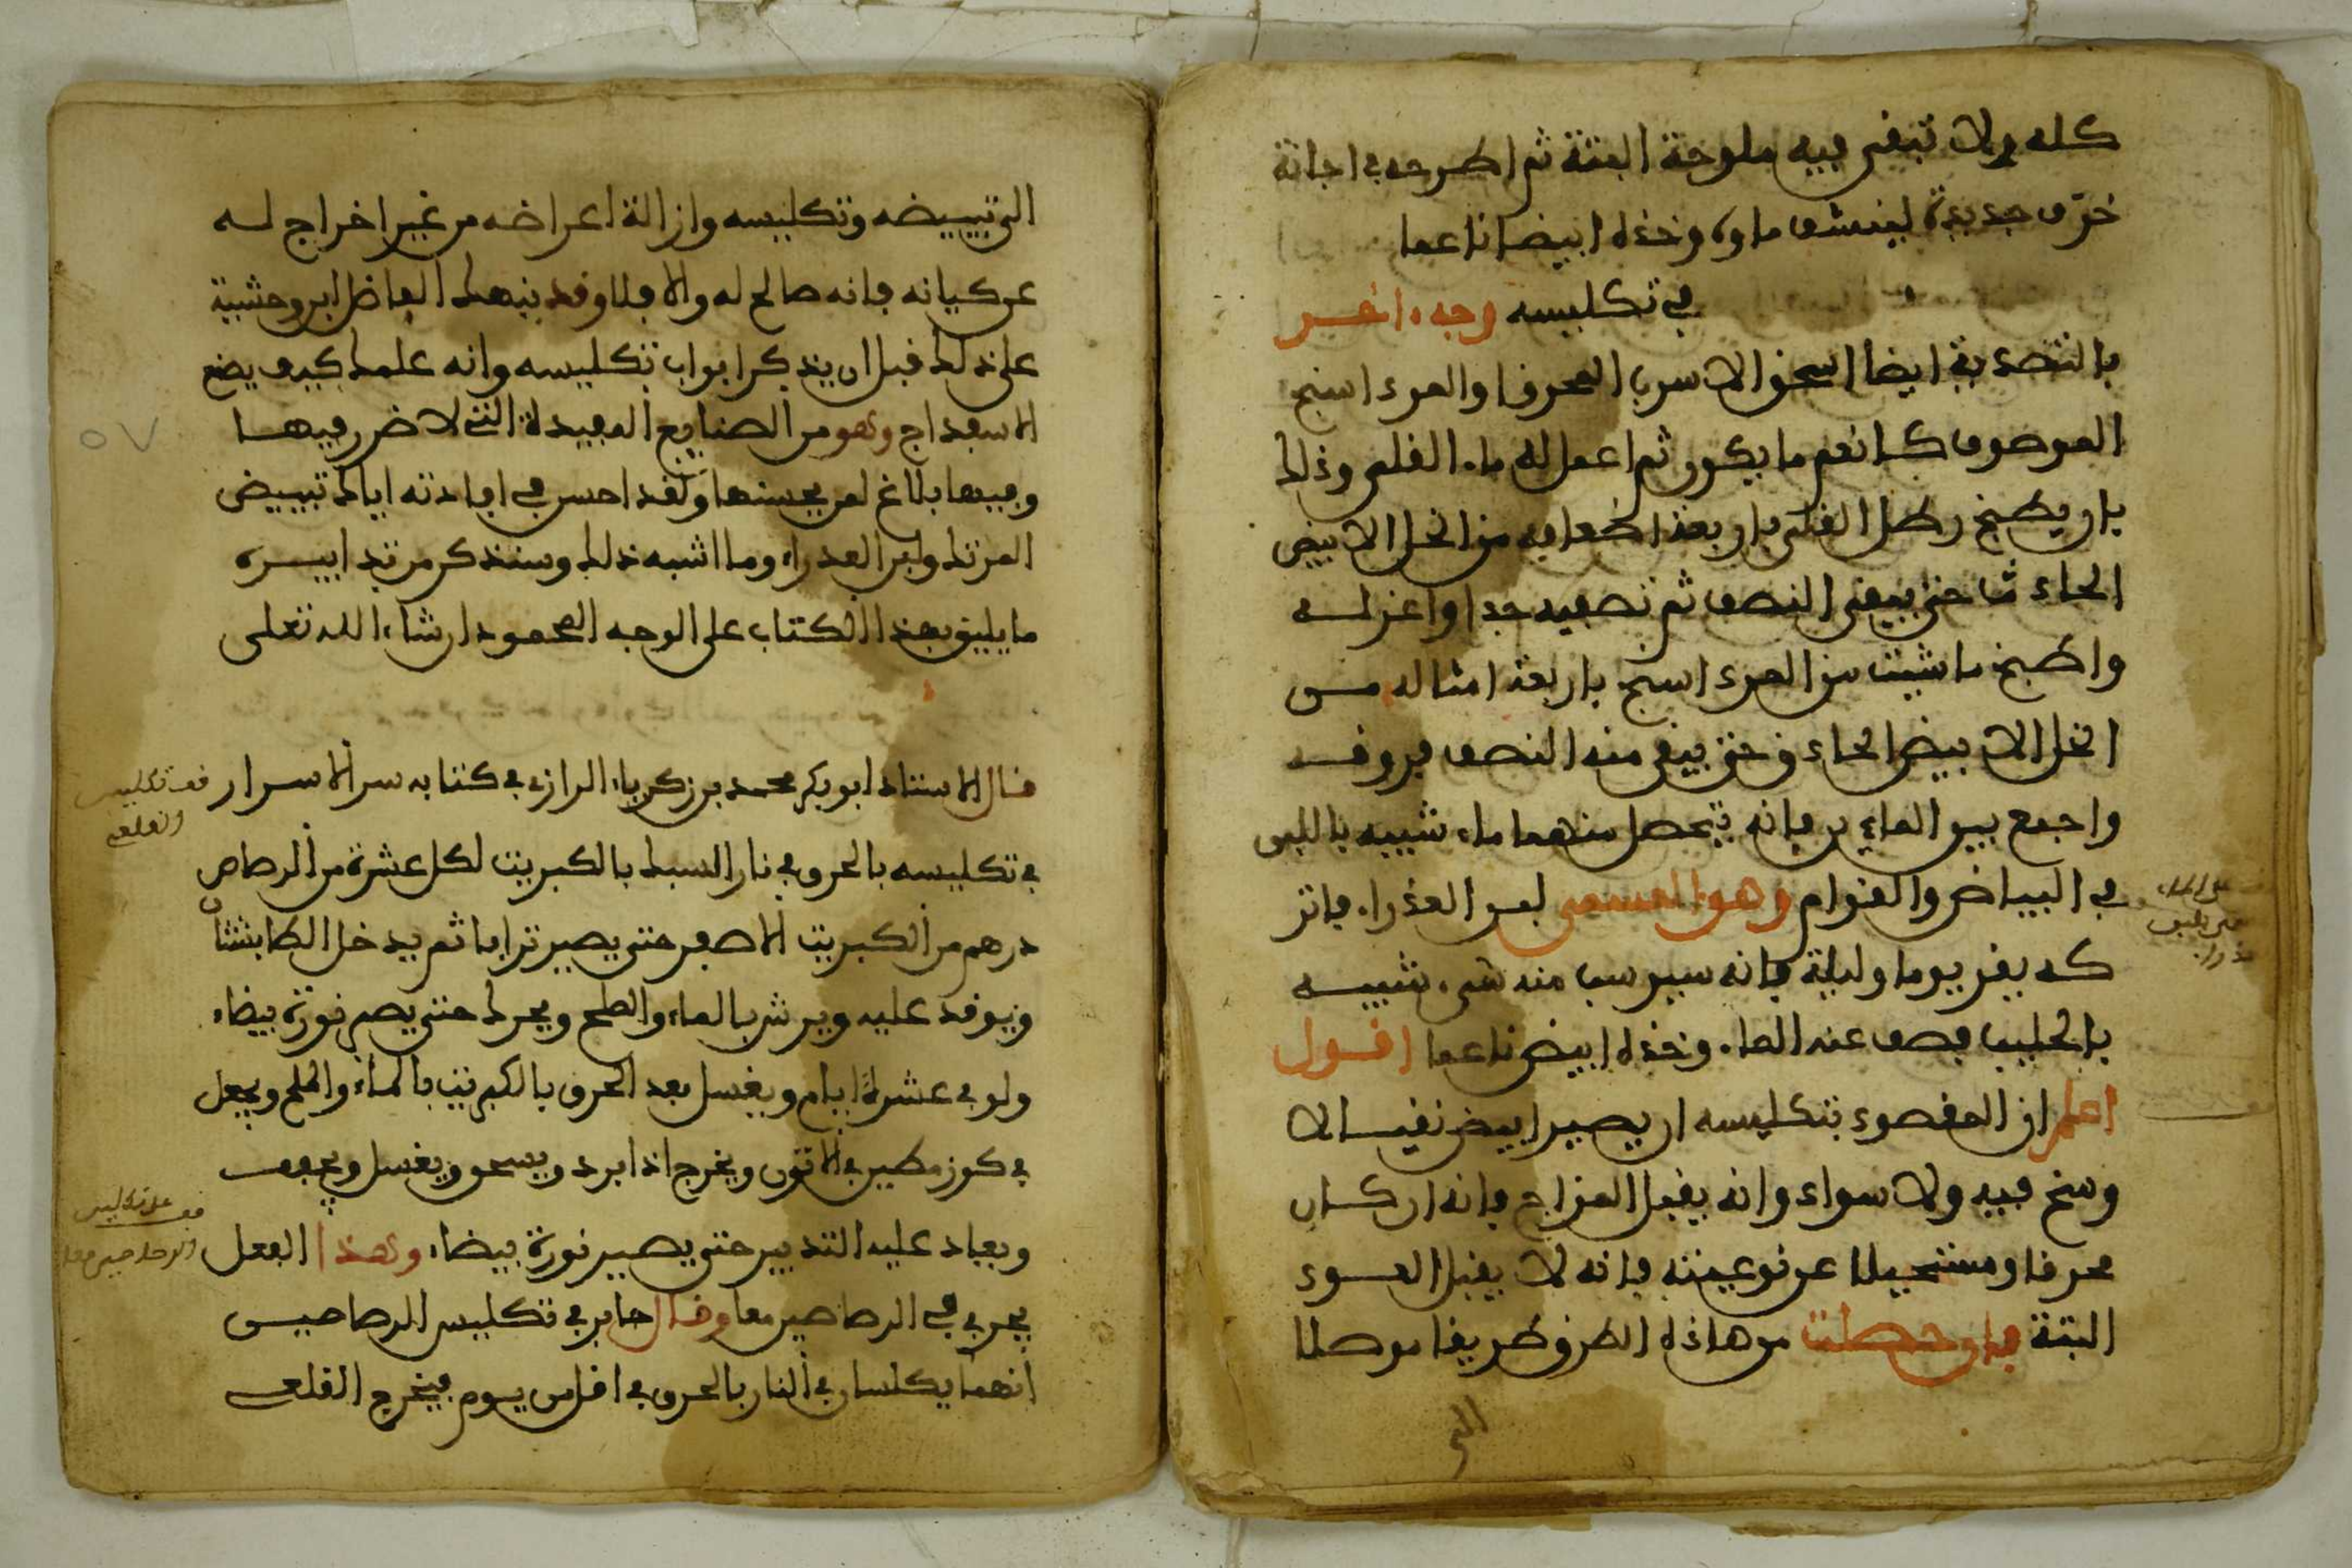 كله ولا تبقى فيه ملوحة البتة ثم اطرحه في اجانة
خزف جديدة لينشف ماوه وخذه ابيضا ناعما
في تكليسه وجه اخر
بالتصدية ايضا اسحق الاسرب المحرق او المرداسنج
الموصوف كانعم ما يكون ثم اعمل له ماء القلى وذلك
بان يطبخ رطل القلى باربعة اضعافه من الخل الابيض
الحاذق حتى يبقى النصف ثم تصفيه جدا واعزله
واطبخ ما شيت من المرداسنج باربعة امثاله من
الخل الابيض الحاذق حتى يبقى منه النصف فروقه
واجمع بين الماءين فانه يحصل منهما ماء شبيه باللبن
في البياض والقوام وهو المسمى لبن العذراء فاتر
كه يقر يوما وليلة فانه سيرسب منه شيء شبيه
بالحليب فصف عنه الماء وخذه ابيض ناعما اقول
اعلم ان المقصود بتكليسه ان يصير ابيض نقيا لا
وسخ فيه ولا سواد وانه يقبل المزاج فانه ان كان
محرقا ومستحيلا عن نوعيته فانه لا يقبل العود
البتة فان حصلت من هاذه الطرق طريقا موصلا
الى
الى تبييضه وتكليسه وازالة اعراضه من غير اخراج له
عن كيانه فانه صالح له والا فلا وقد نبهك الفاضل ابن وحشية
على ذلك قبل ان يذكر ابواب تكليسه وانه علمك كيف يضع
الاسفداج وهو من الصنايع المفيدة التي لا ضرر فيها
وفيها بلاغ لمن يحسنها ولقد احسن في افادته اياك تبييض
المرتك ولبن العذراء وما اشبه ذلك وسنذكر من تدابيره
ما يليق بهذا الكتاب على الوجه المحمود ان شاء الله تعلى
قال الاستاذ ابو بكر محمد بن زكرياء الرازي في كتابه سر الاسرار
قف تكليس
القلعي
في تكليسه بالحرق في نار السبك بالكبريت لكل عشرة من الرصاص
درهم من الكبريت الاصفر حتى يصير ترابا ثم يدخل الطابشتان
ويوقد عليه ويرش بالماء والملح ويحرك حتى يصير نورة بيضاء
ولو في عشرة ايام ويغسل بعد الحرق بالكبريت بالماء والملح ويجعل
في كوز مطين في الاتون ويخرج اذا برد ويسحق ويغسل ويجفف
ويعاد عليه التدبير حتى يصير نورة بيضاء وهذا الفعل
قف على تكليس
الرصاصين معا
يجري في الرصاصين معا وقال جابر في تكليس الرصاصين
انهما يكلسان في النار بالحرق في اقل من يوم فيخرج القلعي